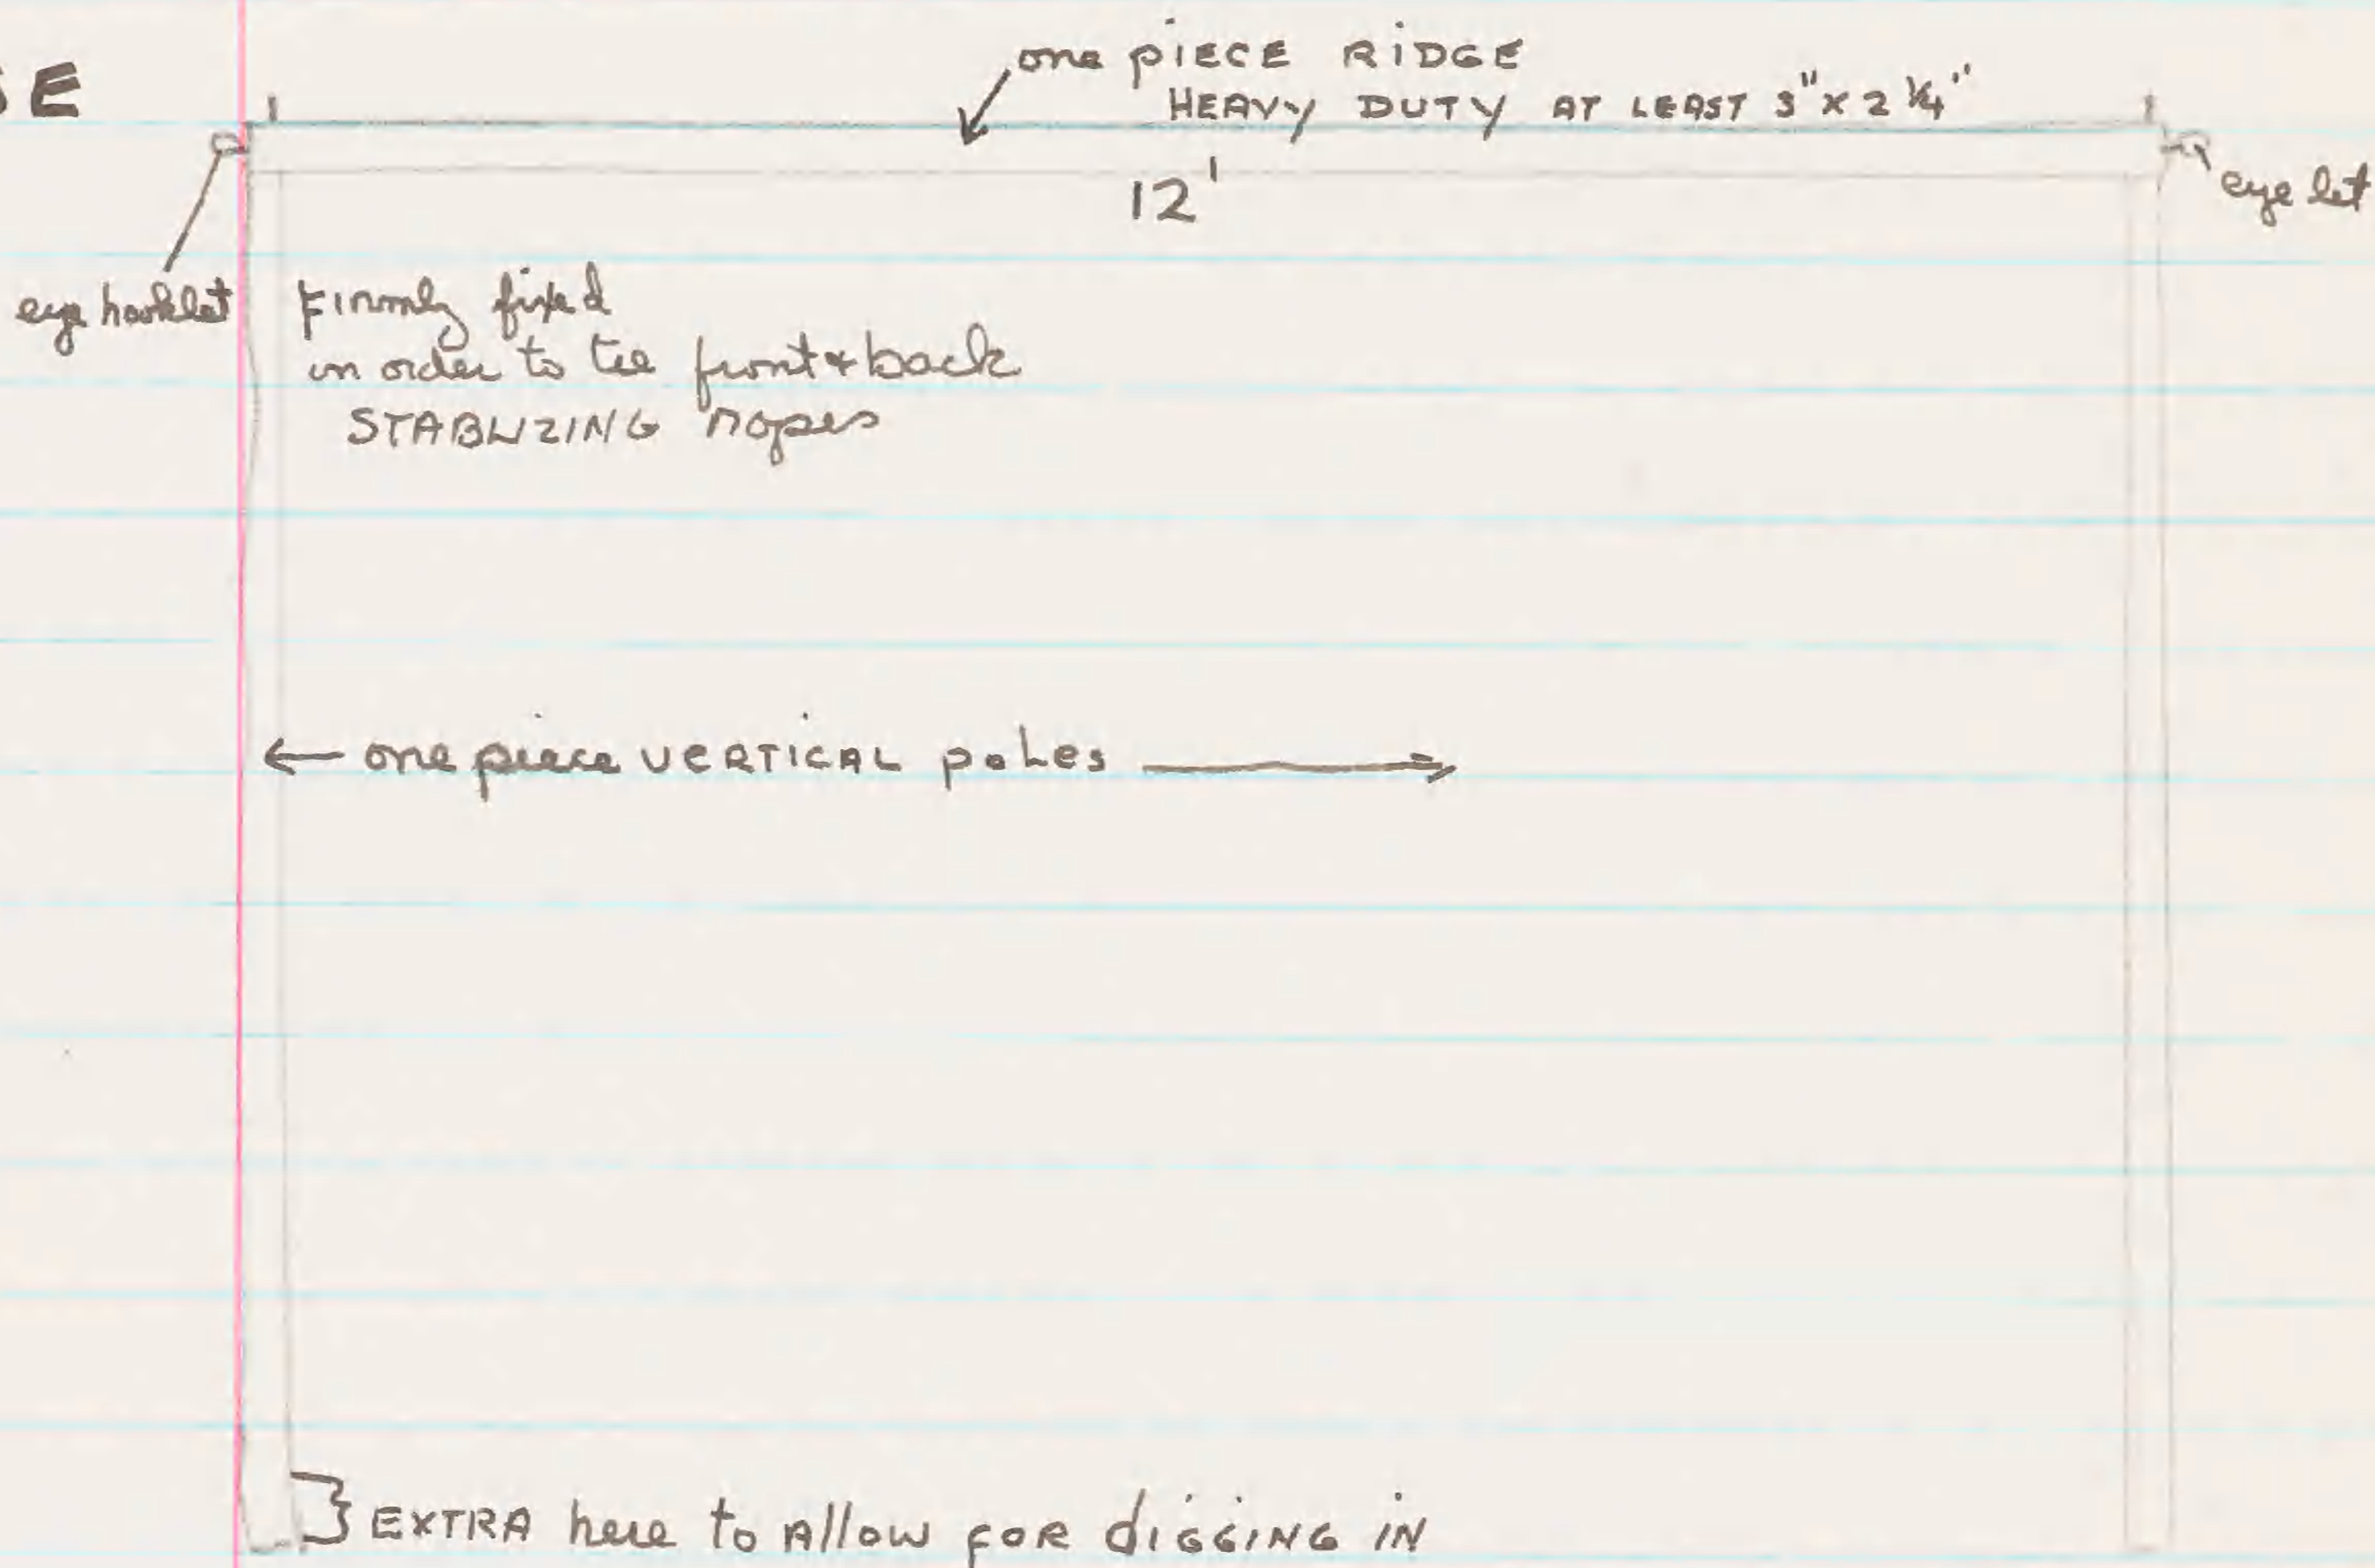 SE
one piECE RiDGE
HEAVY DUTY AT LEAST 3" x 2 1/4"
12'
eye let
eye hooklet
Firmly fixed
in order to tie front + back
STABLIZING ropes
← one piece VERTICAL poles →
} EXTRA here to Allow FOR diGGiNG iN